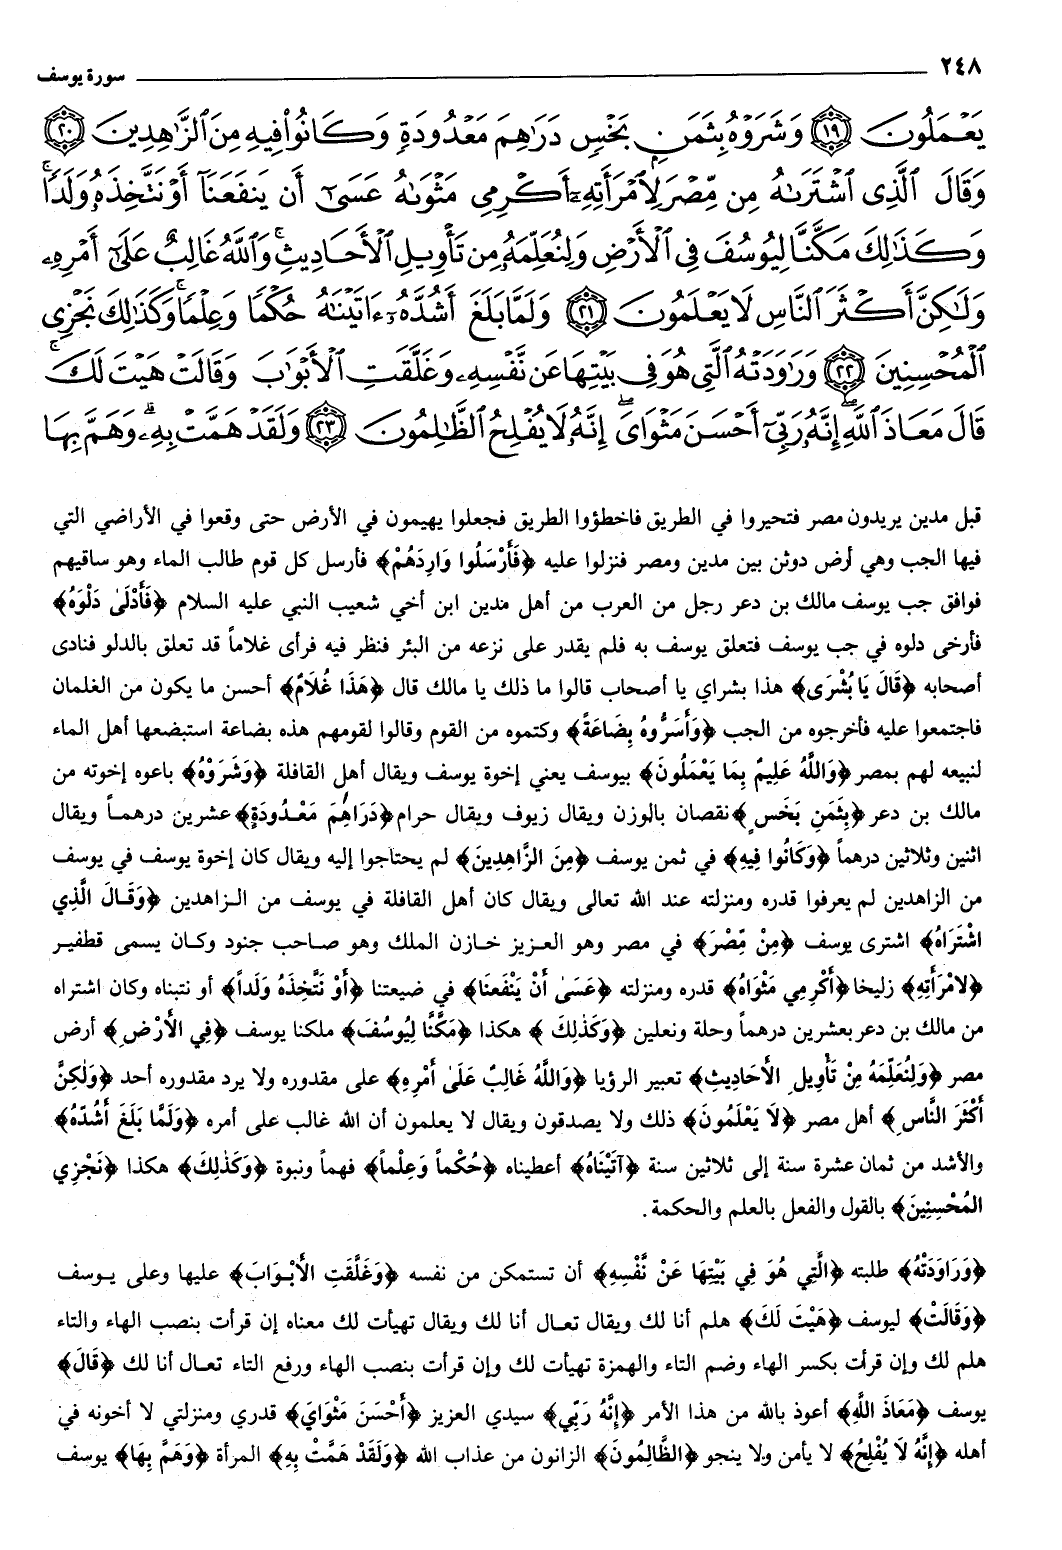 ٢٤٨ سورة يوسف
يَعْمَلُونَ ﴿١٩﴾ وَشَرَوْهُ بِثَمَنٍ بَخْسٍ دَرَاهِمَ مَعْدُودَةٍ وَكَانُوا فِيهِ مِنَ الزَّاهِدِينَ ﴿٢٠﴾
وَقَالَ الَّذِي اشْتَرَاهُ مِن مِّصْرَ لِامْرَأَتِهِ أَكْرِمِي مَثْوَاهُ عَسَىٰ أَن يَنفَعَنَا أَوْ نَتَّخِذَهُ وَلَدًا ۚ
وَكَذَٰلِكَ مَكَّنَّا لِيُوسُفَ فِي الْأَرْضِ وَلِنُعَلِّمَهُ مِن تَأْوِيلِ الْأَحَادِيثِ ۚ وَاللَّهُ غَالِبٌ عَلَىٰ أَمْرِهِ
وَلَٰكِنَّ أَكْثَرَ النَّاسِ لَا يَعْلَمُونَ ﴿٢١﴾ وَلَمَّا بَلَغَ أَشُدَّهُ ءَاتَيْنَاهُ حُكْمًا وَعِلْمًا ۚ وَكَذَٰلِكَ نَجْزِي
الْمُحْسِنِينَ ﴿٢٢﴾ وَرَاوَدَتْهُ الَّتِي هُوَ فِي بَيْتِهَا عَن نَّفْسِهِ وَغَلَّقَتِ الْأَبْوَابَ وَقَالَتْ هَيْتَ لَكَ ۚ
قَالَ مَعَاذَ اللَّهِ ۖ إِنَّهُ رَبِّي أَحْسَنَ مَثْوَايَ ۖ إِنَّهُ لَا يُفْلِحُ الظَّالِمُونَ ﴿٢٣﴾ وَلَقَدْ هَمَّتْ بِهِ ۖ وَهَمَّ بِهَا
قبل مدين يريدون مصر فتحيروا في الطريق فاخطؤوا الطريق فجعلوا يهيمون في الأرض حتى وقعوا في الأراضي التي
فيها الجب وهي أرض دوثن بين مدين ومصر فنزلوا عليه ﴿فَأَرْسَلُوا وَارِدَهُمْ﴾ فأرسل كل قوم طالب الماء وهو ساقيهم
فوافق جب يوسف مالك بن دعر رجل من العرب من أهل مدين ابن أخي شعيب النبي عليه السلام ﴿فَأَدْلَىٰ دَلْوَهُ﴾
فأرخى دلوه في جب يوسف فتعلق يوسف به فلم يقدر على نزعه من البئر فنظر فيه فرأى غلاماً قد تعلق بالدلو فنادى
أصحابه ﴿قَالَ يَا بُشْرَى﴾ هذا بشراي يا أصحاب قالوا ما ذلك يا مالك قال ﴿هَذَا غُلَامٌ﴾ أحسن ما يكون من الغلمان
فاجتمعوا عليه فأخرجوه من الجب ﴿وَأَسَرُّوهُ بِضَاعَةً﴾ وكتموه من القوم وقالوا لقومهم هذه بضاعة استبضعها أهل الماء
لنبيعه لهم بمصر ﴿وَاللَّهُ عَلِيمٌ بِمَا يَعْمَلُونَ﴾ بيوسف يعني إخوة يوسف ويقال أهل القافلة ﴿وَشَرَوْهُ﴾ باعوه إخوته من
مالك بن دعر ﴿بِثَمَنٍ بَخْسٍ﴾ نقصان بالوزن ويقال زيوف ويقال حرام ﴿دَرَاهِمَ مَعْدُودَةٍ﴾ عشرين درهماً ويقال
اثنين وثلاثين درهماً ﴿وَكَانُوا فِيهِ﴾ في ثمن يوسف ﴿مِنَ الزَّاهِدِينَ﴾ لم يحتاجوا إليه ويقال كان إخوة يوسف في يوسف
من الزاهدين لم يعرفوا قدره ومنزلته عند الله تعالى ويقال كان أهل القافلة في يوسف من الزاهدين ﴿وَقَالَ الَّذِي
اشْتَرَاهُ﴾ اشترى يوسف ﴿مِنْ مِّصْرَ﴾ في مصر وهو العزيز خازن الملك وهو صاحب جنود وكان يسمى قطفير
﴿لامْرَأَتِهِ﴾ زليخا ﴿أَكْرِمِي مَثْوَاهُ﴾ قدره ومنزلته ﴿عَسَىٰ أَنْ يَنْفَعَنَا﴾ في ضيعتنا ﴿أَوْ نَتَّخِذَهُ وَلَداً﴾ أو نتبناه وكان اشتراه
من مالك بن دعر بعشرين درهماً وحلة ونعلين ﴿وَكَذَٰلِكَ﴾ هكذا ﴿مَكَّنَّا لِيُوسُفَ﴾ ملكنا يوسف ﴿فِي الأَرْضِ﴾ أرض
مصر ﴿وَلِنُعَلِّمَهُ مِنْ تَأْوِيلِ الأَحَادِيثِ﴾ تعبير الرؤيا ﴿وَاللَّهُ غَالِبٌ عَلَىٰ أَمْرِهِ﴾ على مقدوره ولا يرد مقدوره أحد ﴿وَلَٰكِنَّ
أَكْثَرَ النَّاسِ﴾ أهل مصر ﴿لَا يَعْلَمُونَ﴾ ذلك ولا يصدقون ويقال لا يعلمون أن الله غالب على أمره ﴿وَلَمَّا بَلَغَ أَشُدَّهُ﴾
والأشد من ثمان عشرة سنة إلى ثلاثين سنة ﴿آتَيْنَاهُ﴾ أعطيناه ﴿حُكْماً وَعِلْماً﴾ فهماً ونبوة ﴿وَكَذَٰلِكَ﴾ هكذا ﴿نَجْزِي
المُحْسِنِينَ﴾ بالقول والفعل بالعلم والحكمة.
﴿وَرَاوَدَتْهُ﴾ طلبته ﴿الَّتِي هُوَ فِي بَيْتِهَا عَنْ نَّفْسِهِ﴾ أن تستمكن من نفسه ﴿وَغَلَّقَتِ الأَبْوَابَ﴾ عليها وعلى يوسف
﴿وَقَالَتْ﴾ ليوسف ﴿هَيْتَ لَكَ﴾ هلم أنا لك ويقال تعال أنا لك ويقال تهيأت لك معناه إن قرأت بنصب الهاء والتاء
هلم لك وإن قرأت بكسر الهاء وضم التاء والهمزة تهيأت لك وإن قرأت بنصب الهاء ورفع التاء تعال أنا لك ﴿قَالَ﴾
يوسف ﴿مَعَاذَ اللَّهِ﴾ أعوذ بالله من هذا الأمر ﴿إِنَّهُ رَبِّي﴾ سيدي العزيز ﴿أَحْسَنَ مَثْوَايَ﴾ قدري ومنزلتي لا أخونه في
أهله ﴿إِنَّهُ لَا يُفْلِحُ﴾ لا يأمن ولا ينجو ﴿الظَّالِمُونَ﴾ الزانون من عذاب الله ﴿وَلَقَدْ هَمَّتْ بِهِ﴾ المرأة ﴿وَهَمَّ بِهَا﴾ يوسف